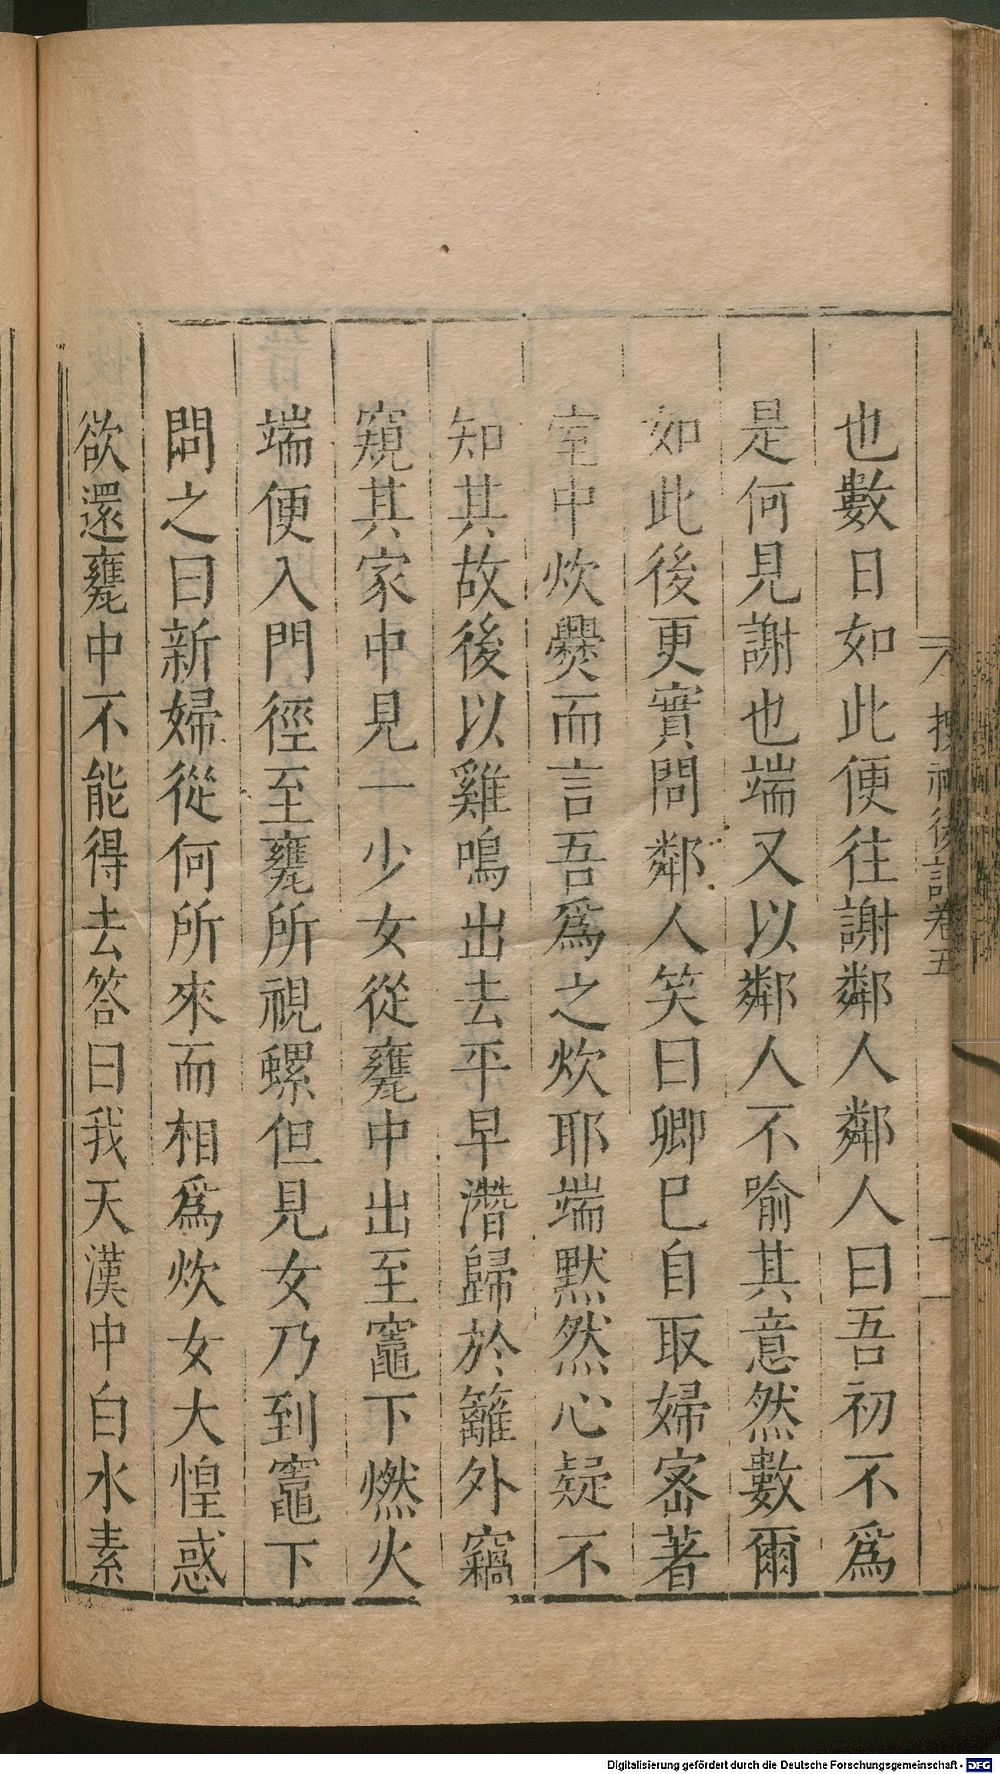 也數日如此便往謝鄰人鄰人曰吾初不爲
是何見謝也端又以鄰人不喻其意然數爾
如此後更實問鄰人笑曰卿已自取婦宻著
室中炊爨而言吾爲之炊耶端默然心疑不
知其故後以雞鳴出去平早潛歸於籬外竊
窺其家中見一少女從甕中出至竈下燃火
端便入門徑至甕所視螺但見女乃到竈下
問之曰新婦從何所來而相爲炊女大惶惑
欲還甕中不能得去答曰我天漢中白水素
Digitalisierung gefördert durch die Deutsche Forschungsgemeinschaft - DFG